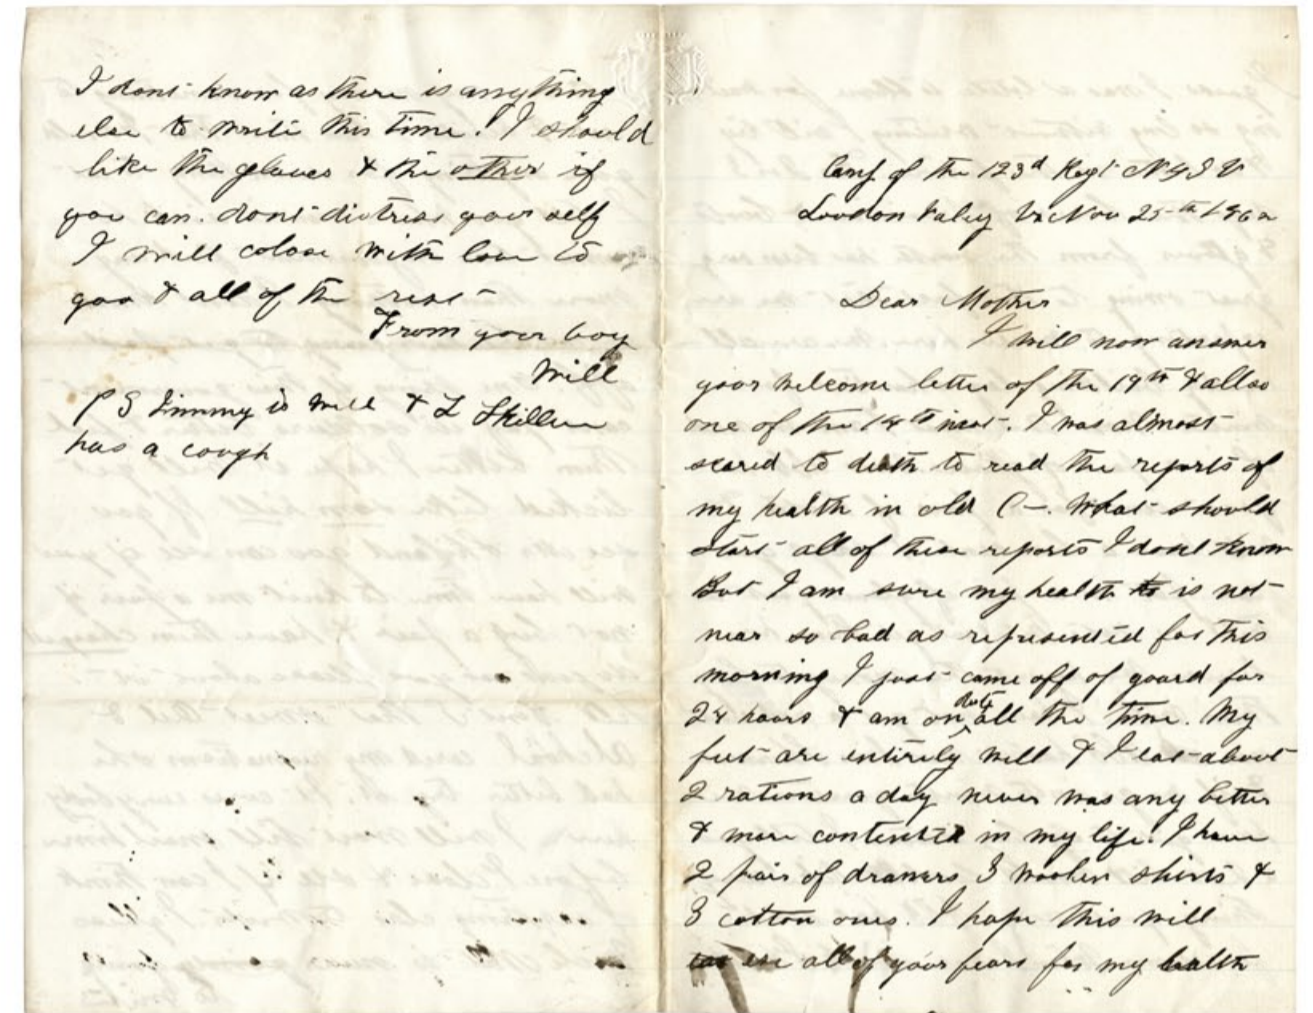 I dont know as there is anything
else to write this time! I should
like the gloves & the other if
you can. dont distress your self
I will colose with love to
you & all of the rest
From your boy
Will
P S Jimmy is well & L Skillin
has a cough
Camp of the 123d Regt N Y S V
Loudon Valey Va Nov 25th 1862
Dear Mother
I will now answer
your welcome letter of the 19th & allso
one of the 14th inst. I was almost
scared to death to read the reports of
my health in old C—. What should
start all of these reports I dont know
But I am sure my health is not
near so bad as represented for this
morning I just came off of guard for
24 hours & am on duty all the time. My
feet are entirely well & I eat about
2 rations a day never was any better
& more contented in my life. I have
2 pair of drawers 3 woolen shirts &
3 cotton ones. I hope this will
all of your fears for my health